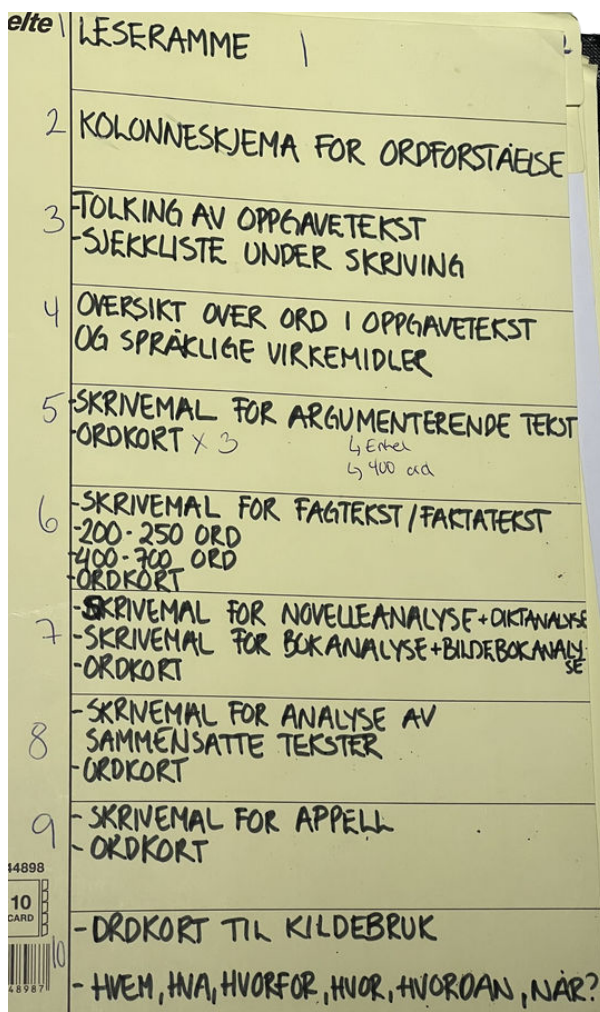 elte
1 LESERAMME 1
2 KOLONNESKJEMA FOR ORDFORSTÅELSE
3 -TOLKING AV OPPGAVETEKST
-SJEKKLISTE UNDER SKRIVING
4 OVERSIKT OVER ORD I OPPGAVETEKST
OG SPRÅKLIGE VIRKEMIDLER
5 -SKRIVEMAL FOR ARGUMENTERENDE TEKST
-ORDKORT x 3 ↳ Enkel
↳ 400 ord
6 -SKRIVEMAL FOR FAGTEKST/FAKTATEKST
-200-250 ORD
-400-700 ORD
-ORDKORT
7 -SKRIVEMAL FOR NOVELLEANALYSE+DIKTANALYSE
-SKRIVEMAL FOR BOKANALYSE+BILDEBOKANALY-
SE
-ORDKORT
8 -SKRIVEMAL FOR ANALYSE AV
SAMMENSATTE TEKSTER
-ORDKORT
9 - SKRIVEMAL FOR APPELL
- ORDKORT
44898
10
CARD
10 - ORDKORT TIL KILDEBRUK
- HVEM, HVA, HVORFOR, HVOR, HVORDAN, NÅR?
48987